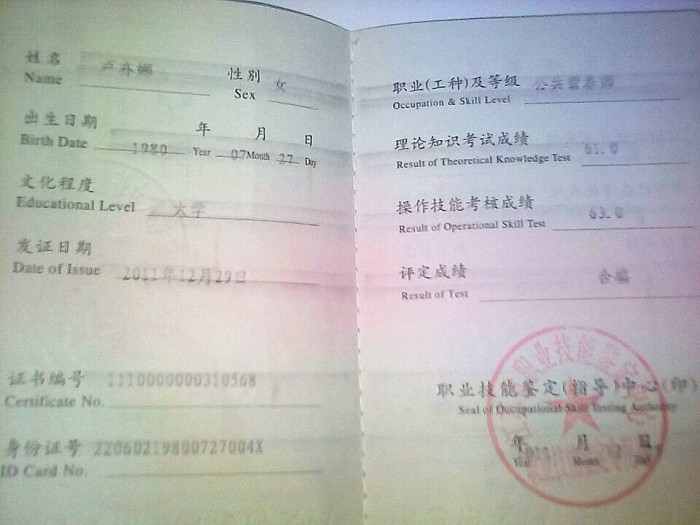 姓名
Name
性别 女
Sex
出生日期 年 月 日
Birth Date 1980 Year 07 Month 27 Day
文化程度
Educational Level 大学
发证日期
Date of Issue 2011年12月29日
证书编号 1110000000310568
Certificate No.
身份证号 22060219800727004X
ID Card No.
职业(工种)及等级 公共营养师
Occupation & Skill Level
理论知识考试成绩 61.0
Result of Theoretical Knowledge Test
操作技能考核成绩 63.0
Result of Operational Skill Test
评定成绩 合格
Result of Test
职业技能鉴定
职业技能鉴定(指导)中心(印)
Seal of Occupational Skill Testing Authority
年 月 日
Year Month Day